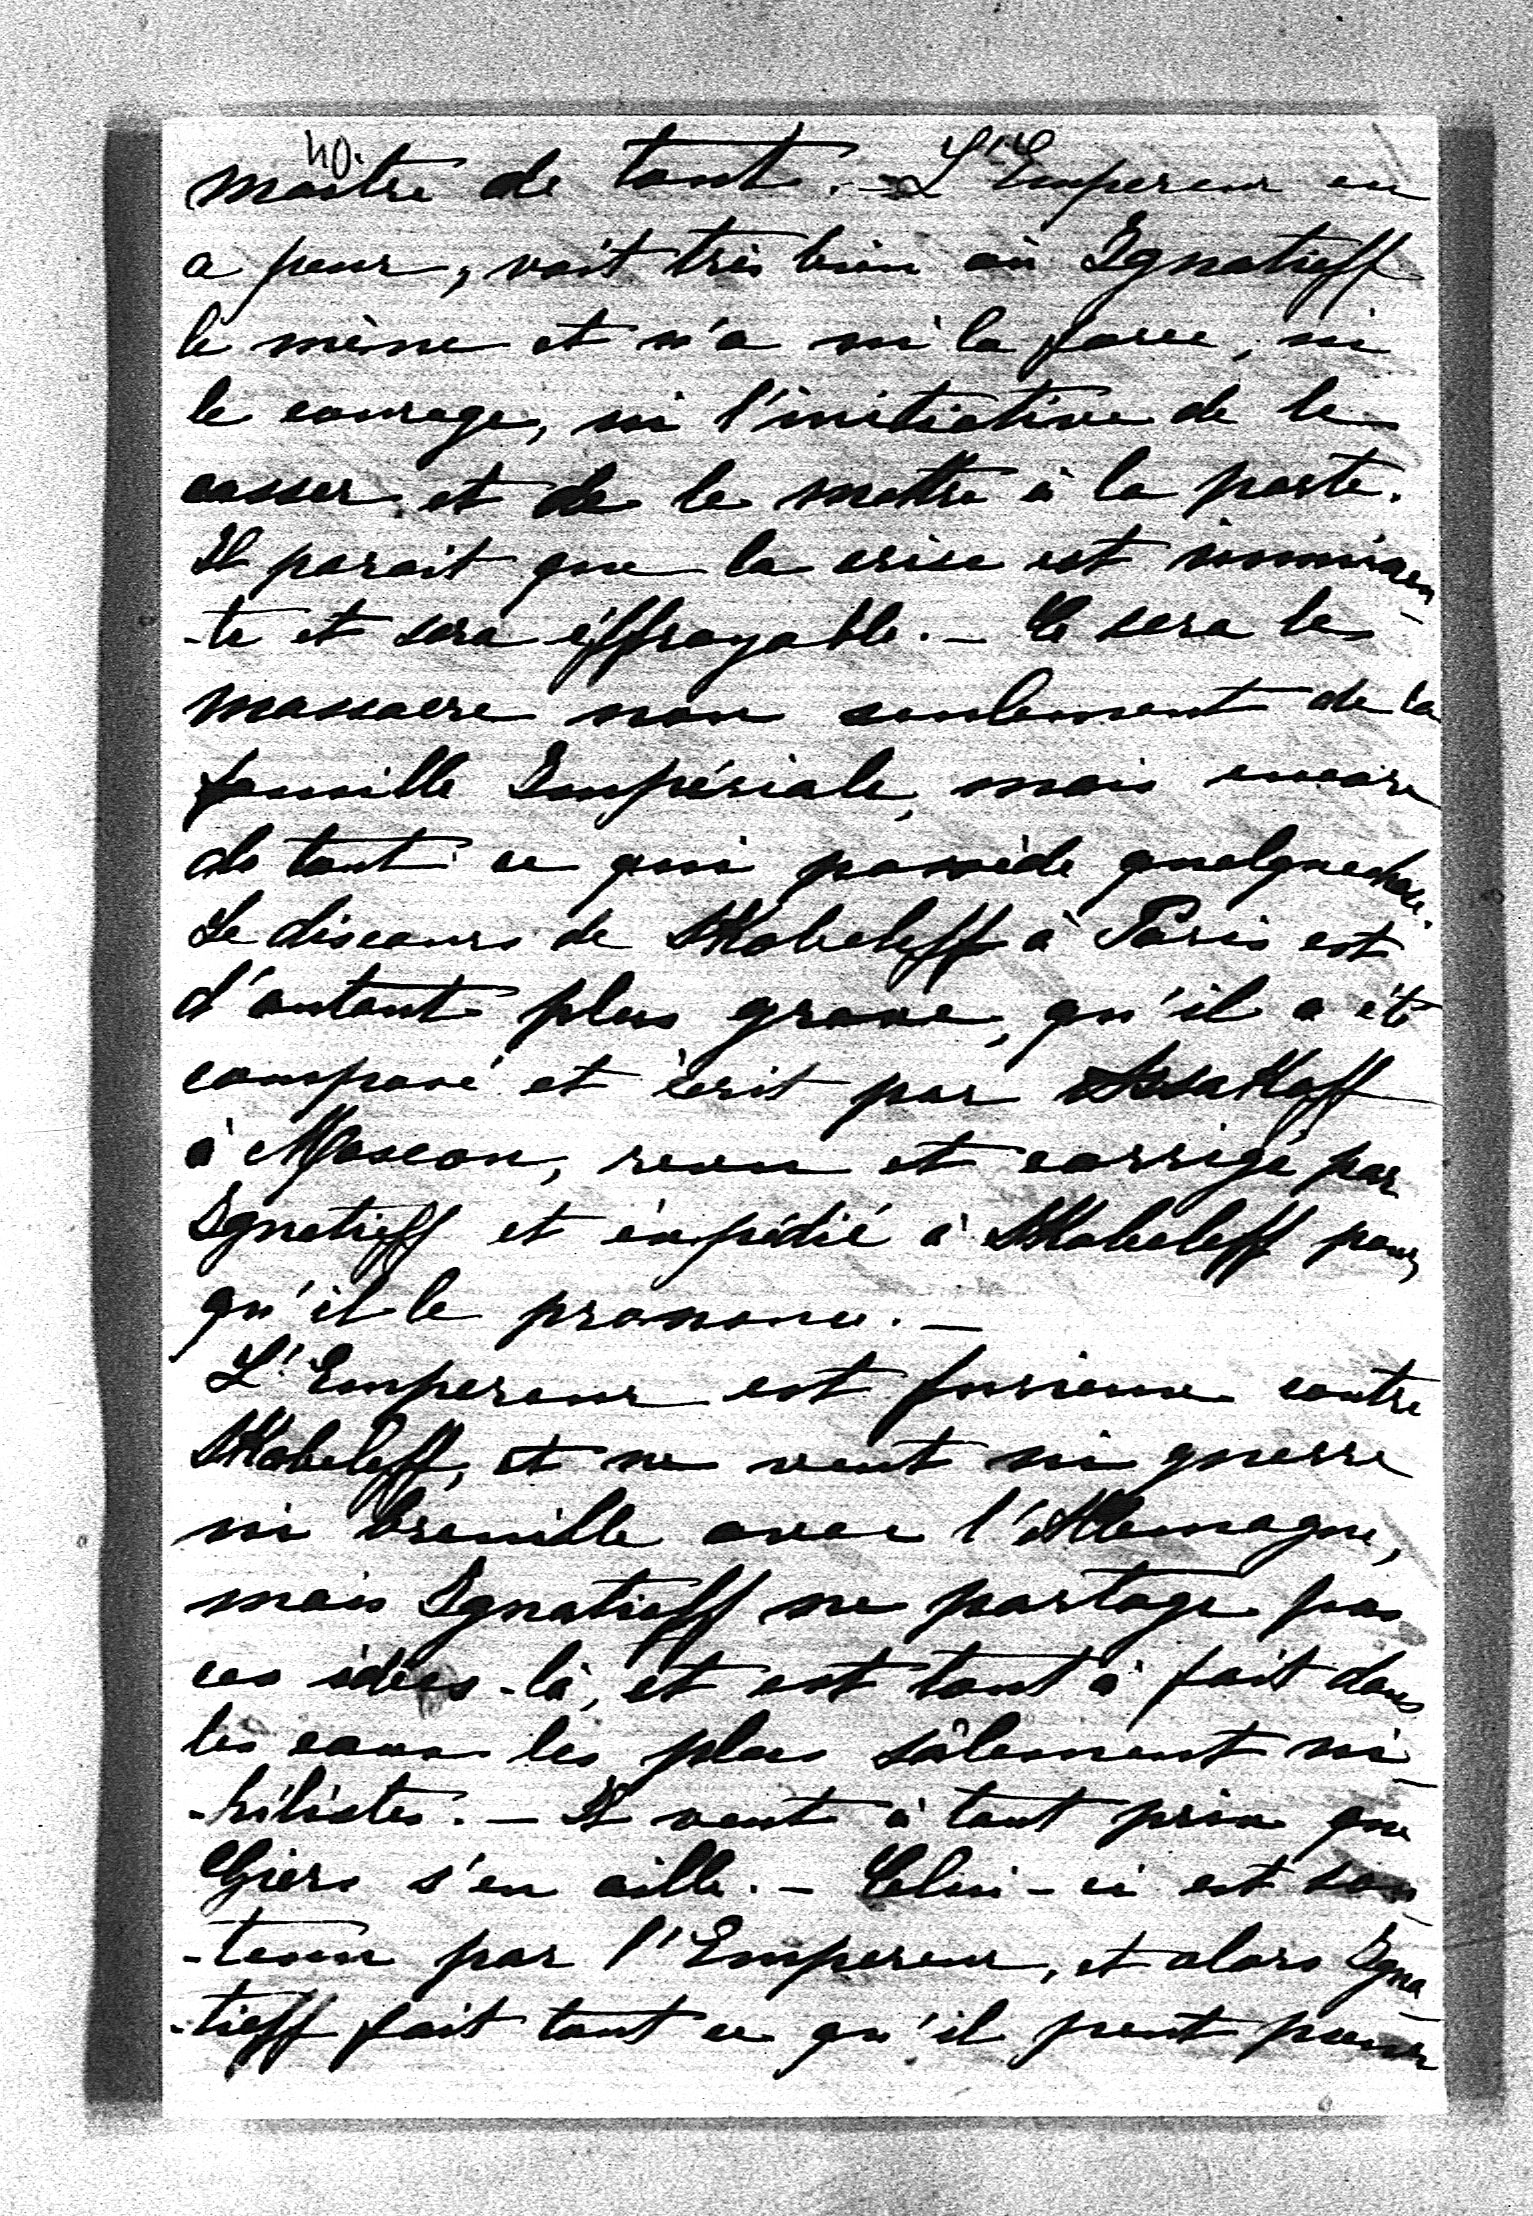 40.
maître de tout. - L'Empereur en
a peur, voit très bien où Ignatieff
le mène et n'a ni la force, ni
le courage, ni l'initiative de le
casser et de le mettre à la porte.
Il parait que la crise est imminen-
-te et sera éffroyable. - Ce sera le
massacre non seulement de la
famille Impériale, mais encore
de tout ce qui possède quelquechose.
Le discours de SKobeleff à Paris est
d'autant plus grave, qu'il a été
composé et écrit par AksaKoff
à Moscou, revu et corrigé par
Ignatieff et éxpédié à SKobeleff pour
qu'il le prononce. -
L'Empereur est furieux contre
SKobeleff, et ne veut ni guerre
ni brouille avec l'Allemagne,
mais Ignatieff ne partage pas
ces idées-là, et est tout à fait dans
les eaux les plus sâlement ni-
-hilistes. - Il veut à tout prix que
Giers s'en aille. - Celui-ci est sou-
-tenu par l'Empereur, et alors Igna-
-tieff fait tout ce qu'il peut pour